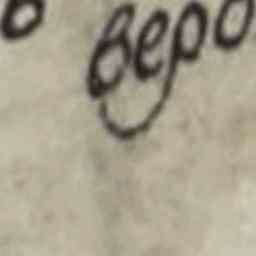 веро